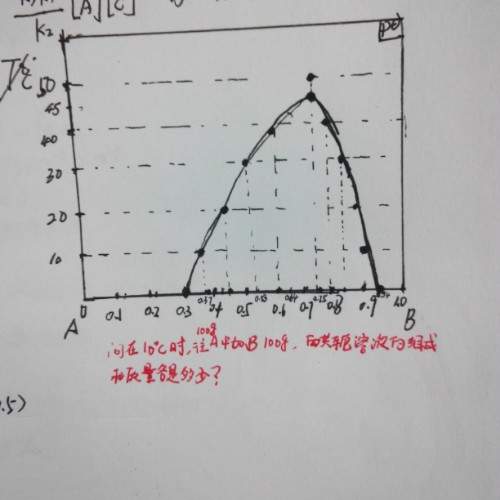 K₂ [A][C]
T/℃
P⊖
50
45
400
30
20
10
0 0.1 0.2 0.3 0.37 0.4 0.5 0.53 0.6 0.64 0.7 0.75 0.8 0.9 1.0
A B
100g
问在10℃时,往A中加B 100g,两共轭溶液的组成
和质量各是多少?
0.5)